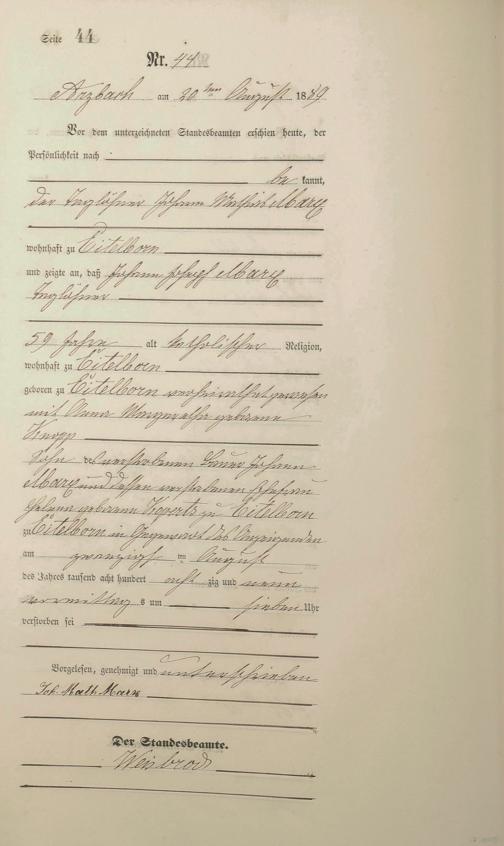 Seite 44
Nr. 44
Arzbach am 20ten August 1889
Vor dem unterzeichneten Standesbeamten erschien heute, der
Persönlichkeit nach
be kannt,
der Taglöhner Johann Mathias Marx
wohnhaft zu Eitelborn
und zeigte an, daß Johann Josef Marx
Taglöhner
59 Jahre alt katholischer Religion,
wohnhaft zu Eitelborn
geboren zu Eitelborn verheirathet gewesen
mit Anna Margaretha geborene
Knopp
Sohn des verstorbenen Bauer Johann
Marx und dessen verstorbenen Ehefrau
Helena geborene zu Eitelborn
zu Eitelborn in Gegenwart des Anzeigenden
am zwanzigst en August
des Jahres tausend acht hundert acht zig und neun
vormittag s um sieben Uhr
verstorben sei
Vorgelesen, genehmigt und unterschrieben
Joh. Math Marx
Der Standesbeamte.
Weisbrod